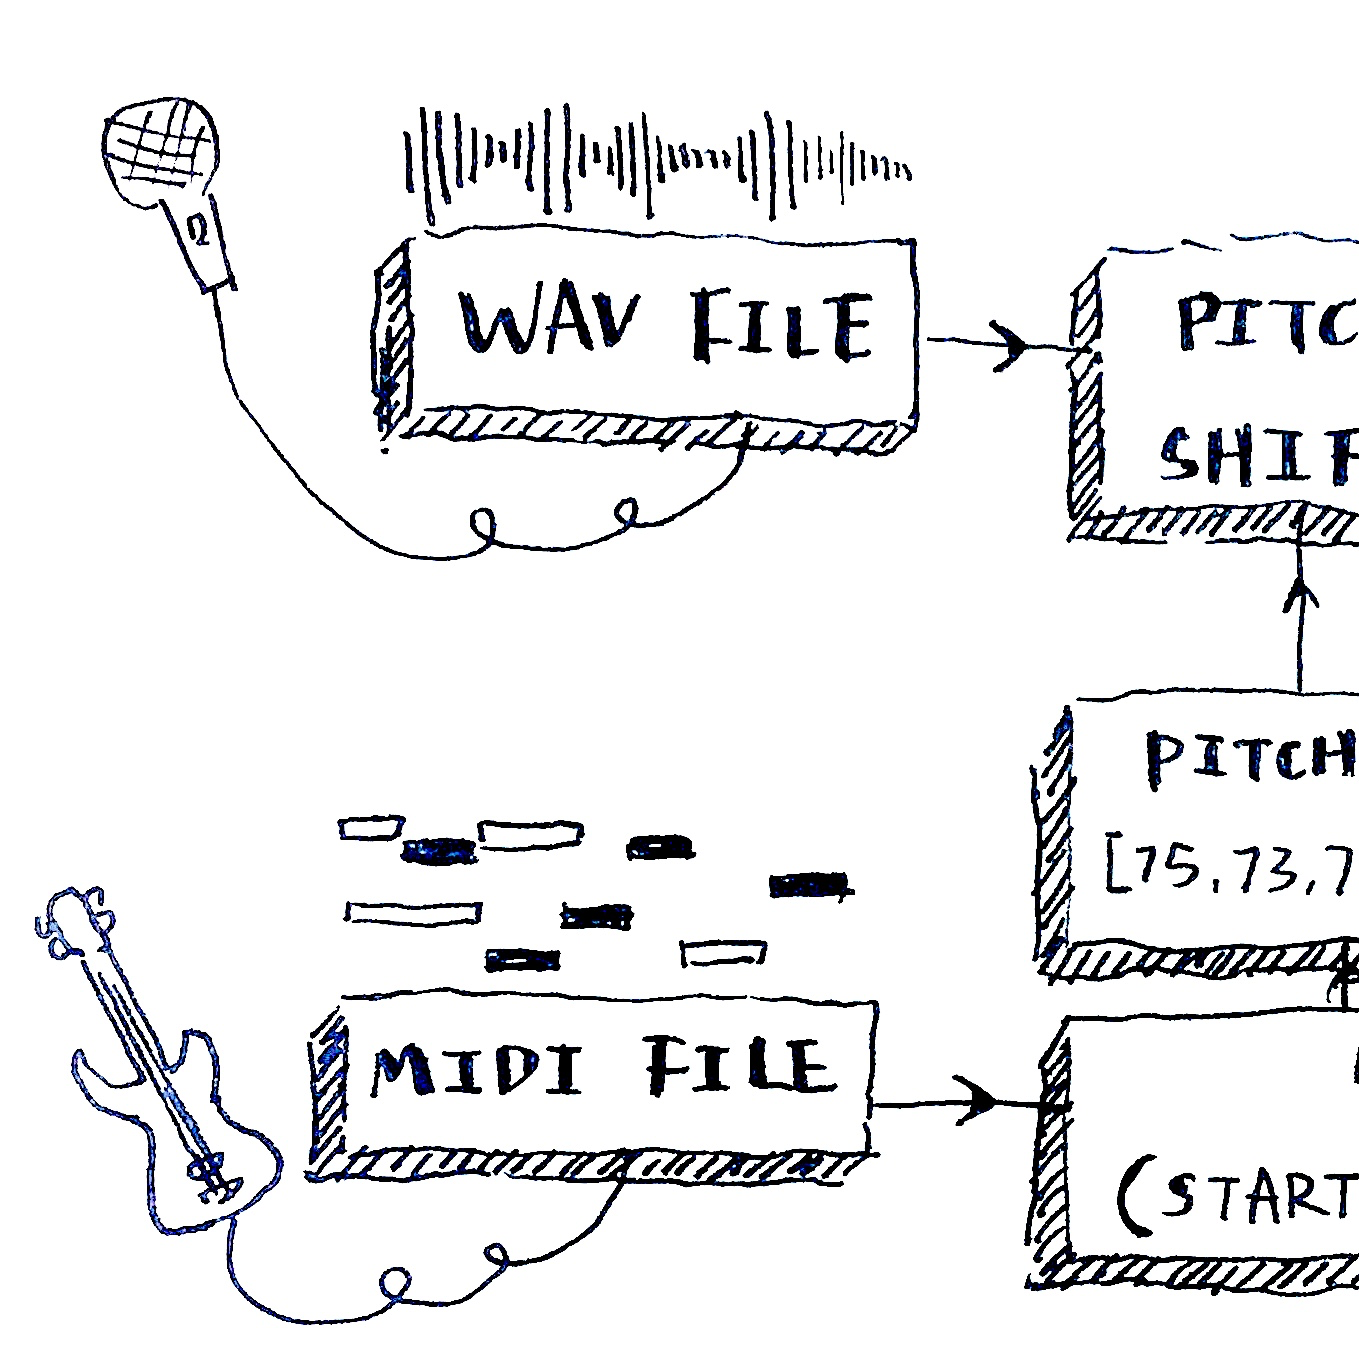 WAV FILE
PITC
SHIF
PITCH
[75,73,7
MIDI FILE
(START